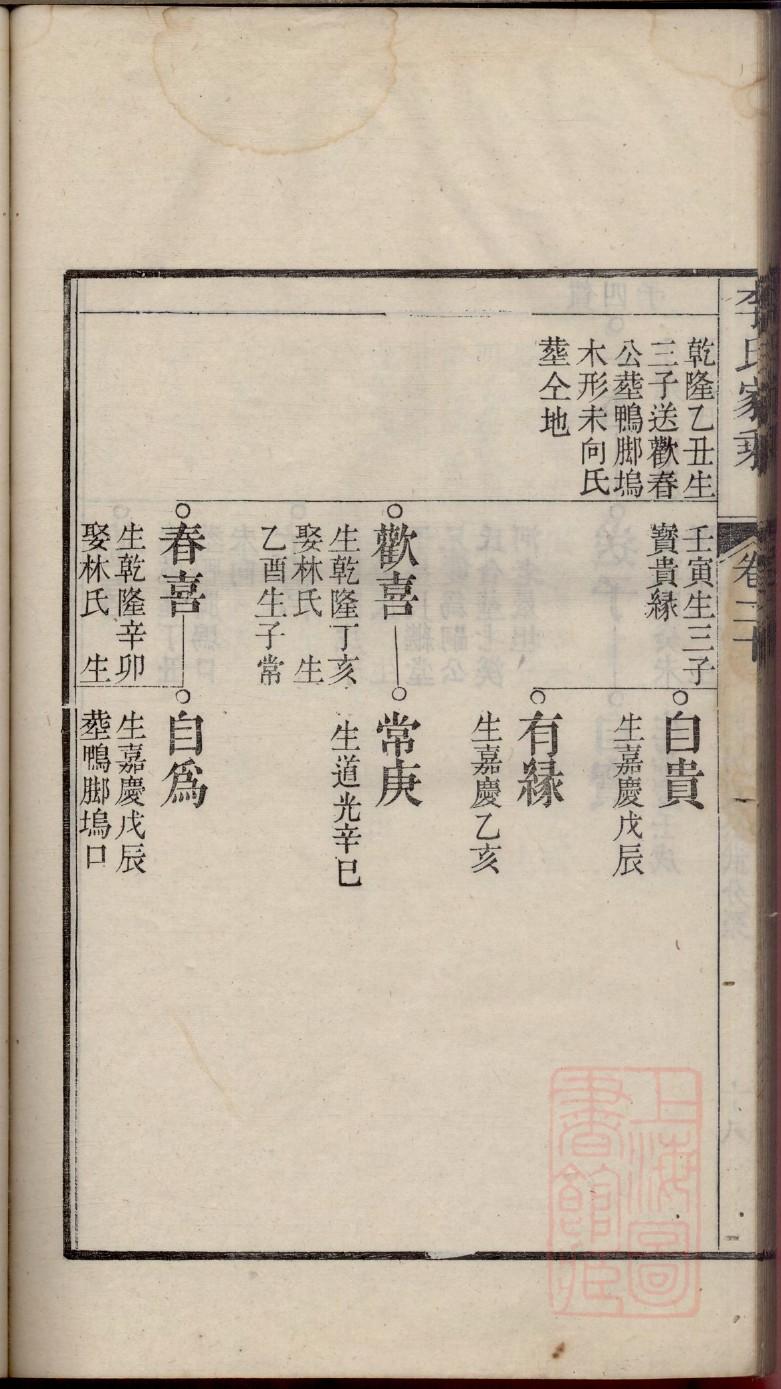 李氏家乘
卷二十
乾隆乙丑生
三子送歡春
公塟鴨脚塢
木形未向氏
塟仝地
壬寅生三子
寶貴緣
自貴
生嘉慶戊辰
有緣
生嘉慶乙亥
歡喜
生乾隆丁亥
娶林氏　生
乙酉生子常
常庚
生道光辛巳
春喜
生乾隆辛卯
娶林氏　生
自爲
生嘉慶戊辰
塟鴨脚塢口
上海圖
書館藏